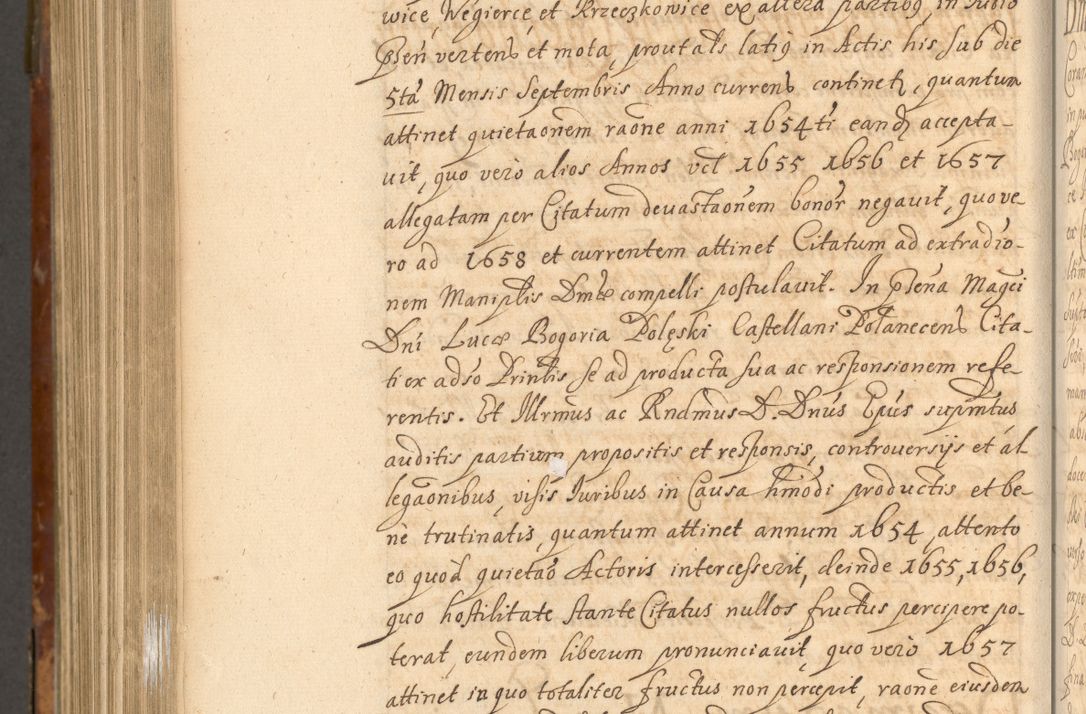 wice, Węgierce et Krzeczkowice ex altera partibq in Judio
Pṡen vertenṡ et mota, prout aḷs latiq in Actis his sub die
5tá Mensis Septembris Anno currenṡ continetȝ, quantum
attinet quietaōnem raōne anni 1654ti eandȝ accepta-
vit, quo vero alios Annos vct 1655 1656 et 1657
allegatam per Citatum devastaōnem bonor̄ negavit, quo ve-
ro ad 1658 et currentem attinet Citatum ad extradio-
nem Maniplis Dmæ compelli postulavit. In Pṡena Magci
Dni Lucæ Bogoria Polęski Castellani Połanecenṡ Cita-
ti ex adso Prinlis se ad producta sua ac responsionem refe-
rentis. Et Illrmus ac Rndmus D. Dnus Epus supmtus
auditis partium propositis et responsis, controversijs et al
legaonibus, visis Iuribus in Causa hmodi productis et be-
ne trutinatis, quantum attinet annum 1654, attento
eo quod quietaō Actoris intercesserit, deinde 1655, 1656,
quo hostilitate stante Citatus nullos fructus percipere po-
terat, eundem liberum pronunciavit, quo vero 1657
attinet in quo totaliter fructus non percepit, raōne eiusdem